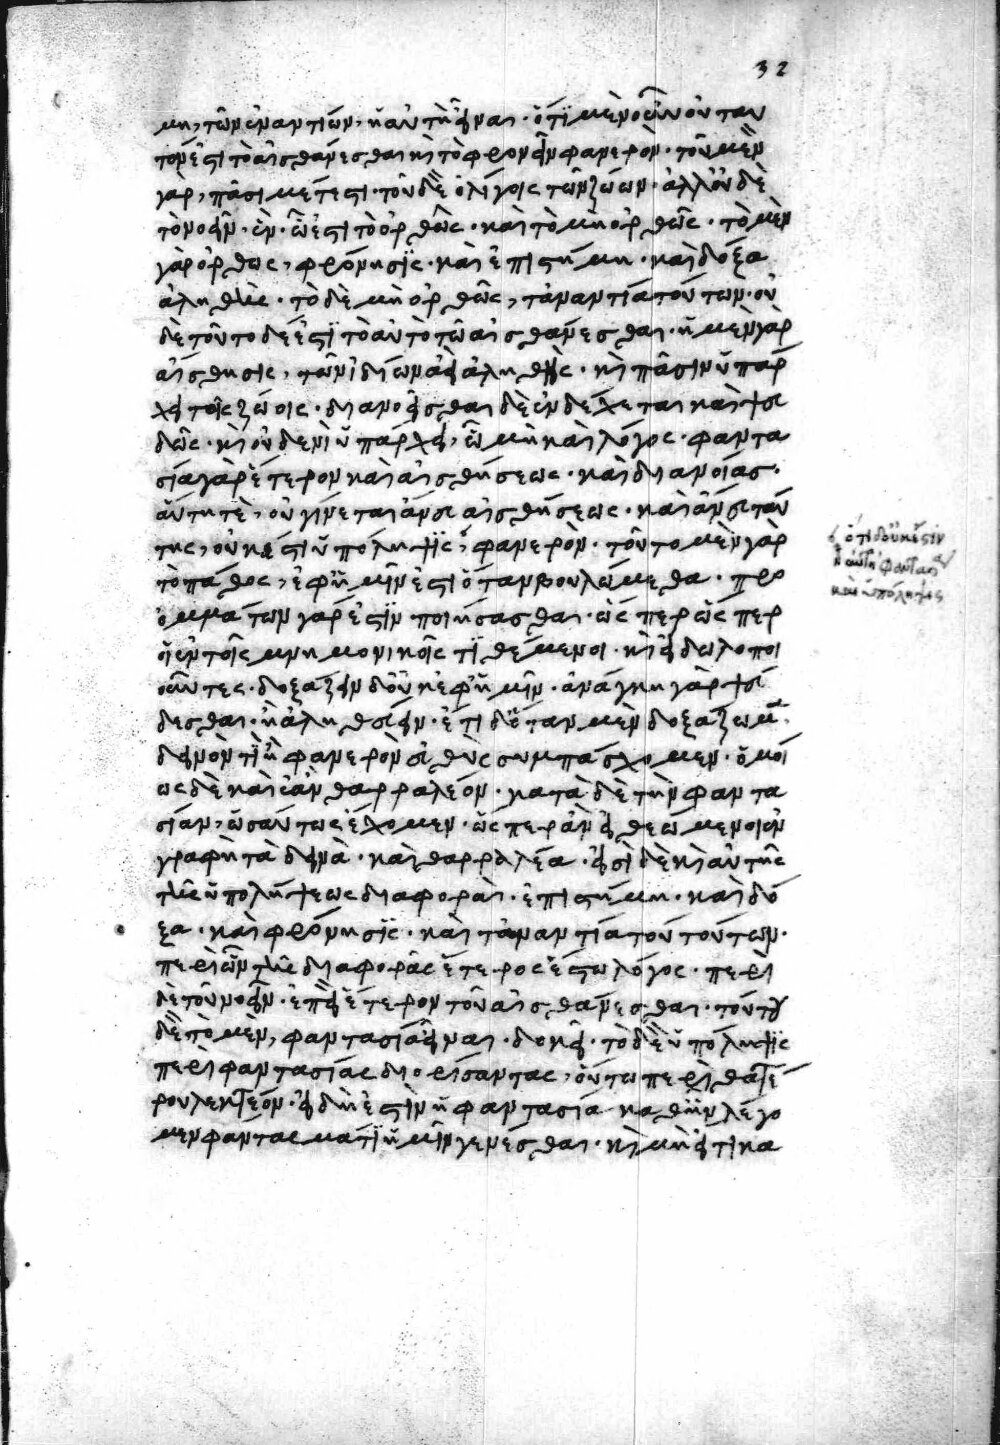 32
μη, τῶν ἐναντίων, ἡ αὐτὴ εἶναι· ὅτι μὲν οὖν οὐ ταυ
τόν ἐστι τὸ αἰσθάνεσθαι καὶ τὸ φρονεῖν φανερόν· τοῦ μὲν
γὰρ, πᾶσι μέτεστι· τοῦ δὲ ὀλίγοις τῶν ζώων· ἀλλ' οὐδὲ
τὸ νοεῖν· ἐν ᾧ ἐστι τὸ ὀρθῶς· καὶ τὸ μὴ ὀρθῶς· τὸ μὲν
γὰρ ὀρθῶς, φρόνησις· καὶ ἐπιστήμη· καὶ δόξα
ἀληθής· τὸ δὲ μὴ ὀρθῶς, τἀναντία τούτων· οὐ
δὲ τοῦτο δέ ἐστι τὸ αὐτὸ τῶ αἰσθάνεσθαι· ἡ μὲν γὰρ
αἴσθησις, τῶν ἰδίων ἀεὶ ἀληθής· καὶ πᾶσιν ὑπάρ
χει τοῖς ζώοις· διανοεῖσθαι δὲ ἐνδέχεται καὶ ψευ
δῶς· καὶ οὐδενὶ ὑπάρχει, ᾧ μὴ καὶ λόγος· φαντα
σία γὰρ ἕτερον καὶ αἰσθήσεως· καὶ διανοίας·
αὕτη τὲ, οὐ γίνεται ἄνευ αἰσθήσεως· καὶ ἄνευ ταύ
της, οὐκ ἔστιν ὑπόληψις, φανερόν· τοῦτο μὲν γὰρ
τὸ πάθος, ἐφ' ἡμῖν ἐστι ὅταν βουλώμεθα· πρὸ
ὀμμάτων γὰρ ἐστὶν ποιήσασθαι· ὥσπερ ὥσπερ
οἱ ἐν τοῖς μνημονικοῖς τιθέμενοι· καὶ εἰδωλοποι
οῦντες· δοξάζειν δ' οὐκ ἐφ' ἡμῖν· ἀνάγκη γὰρ ψεύ
δεσθαι· ἢ ἀληθεύειν· ἔτι δ' ὅταν μὲν δοξάζωμεν
δεινόν τι ἢ φανερὸν εὐθὺς συμπάσχομεν· ὁμοί
ως δὲ καὶ ἐὰν θαρραλέον· κατὰ δὲ τὴν φαντα
σίαν, ὡσαύτως ἔχομεν· ὥσπερ ἂν εἰ θεώμενοι ἐν
γραφῇ τὰ δεινὰ· καὶ θαρραλέα· εἰσὶ δὲ καὶ αὐτῆς
τῆς ὑπολήψεως διαφοραὶ· ἐπιστήμη· καὶ δό
ξα· καὶ φρόνησις· καὶ τἀναντία τού τούτων·
περὶ ὧν τῆς διαφορᾶς ἕτερος ἔστω λόγος· περὶ
δὲ τοῦ νοεῖν· ἐπεὶ ἕτερον τοῦ αἰσθάνεσθαι· τούτου
δὲ τὸ μὲν, φαντασία εἶναι· δοκεῖ· τὸ δὲ ὑπόληψις
περὶ φαντασίας διορίσαντας, οὕτω περὶ θατέ
ρου λεκτέον· εἰ δὴ ἐστὶν ἡ φαντασία καθ' ἣν λέγο
μεν φάντασμά τι ἡμῖν γενέσθαι· καὶ μὴ εἴ τι κα
ὅτι δ' οὐκ ἔστιν
ἡ αὐτὴ φαντασία
καὶ ὑπόληψις